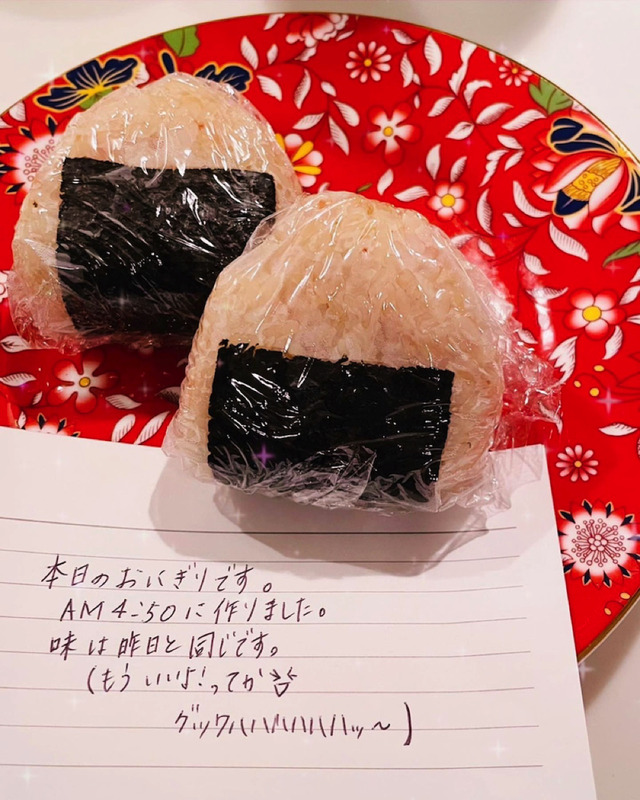 本日のおにぎりです。
AM4:50に作りました。
味は昨日と同じです。
(もういいよ!ってか
グッワハハハハハハハッ〜)